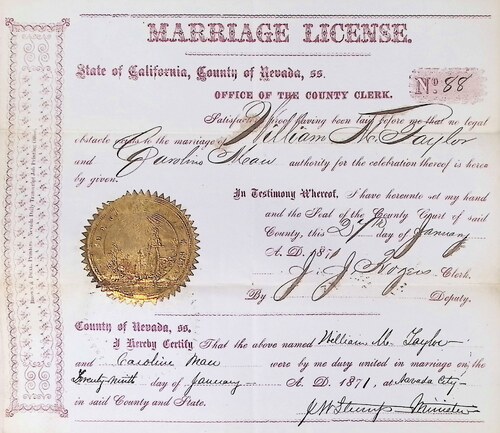 MARRIAGE LICENSE.
State of California, County of Nevada, ss.
No. 88
OFFICE OF THE COUNTY CLERK.
Satisfactory proof having been laid before me that no legal
obstacle exists to the marriage of William M. Taylor
and Caroline Mau authority for the celebration thereof is hereby
by given.
In Testimony Whereof, I have hereunto set my hand
and the Seal of the County Court of said
County, this 27th day of January
A. D. 1871
J. J. Rogers Clerk.
By Deputy.
County of Nevada, ss.
I Hereby Certify That the above named William M. Taylor
and Caroline Mau were by me duly united in marriage on the
Twenty Ninth day of January A. D. 1871, at Nevada City
in said County and State.
Minister